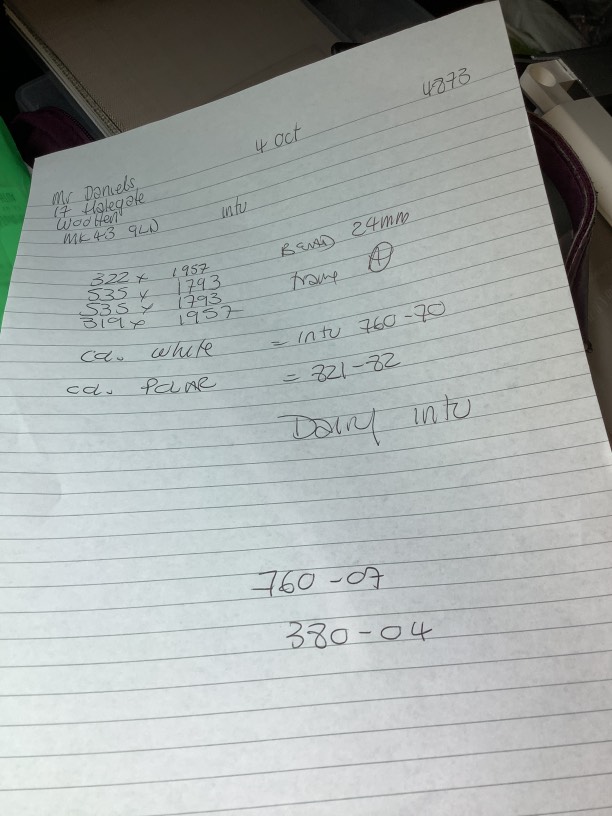 4873
4 Oct
Mr Daniels
17 Halegate
Wootten
MK43 9LD
intu
322 x 1957
535 x 1793
535 x 1793
319 x 1957
Bead 24mm
frame
cd. white = intu 760-70
cd. = 821-82
Daily intu
760-07
380-04